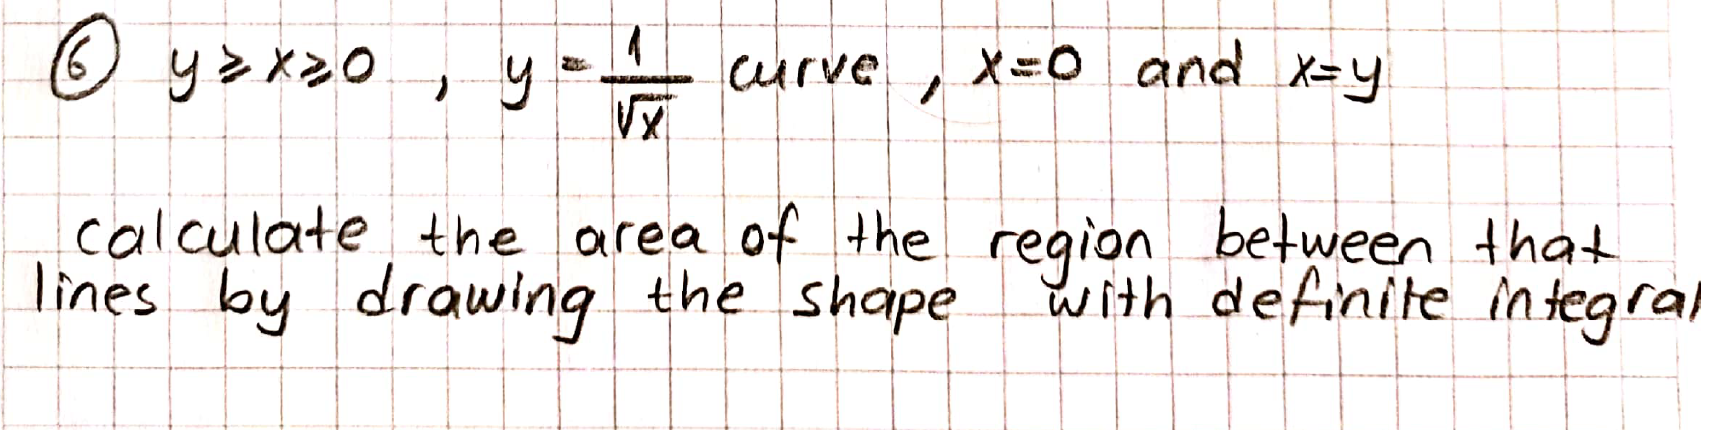 ⑥ y ≥ x ≥ 0 , y = 1/√x curve , x=0 and x=y
calculate the area of the region between that
lines by drawing the shape with definite integral